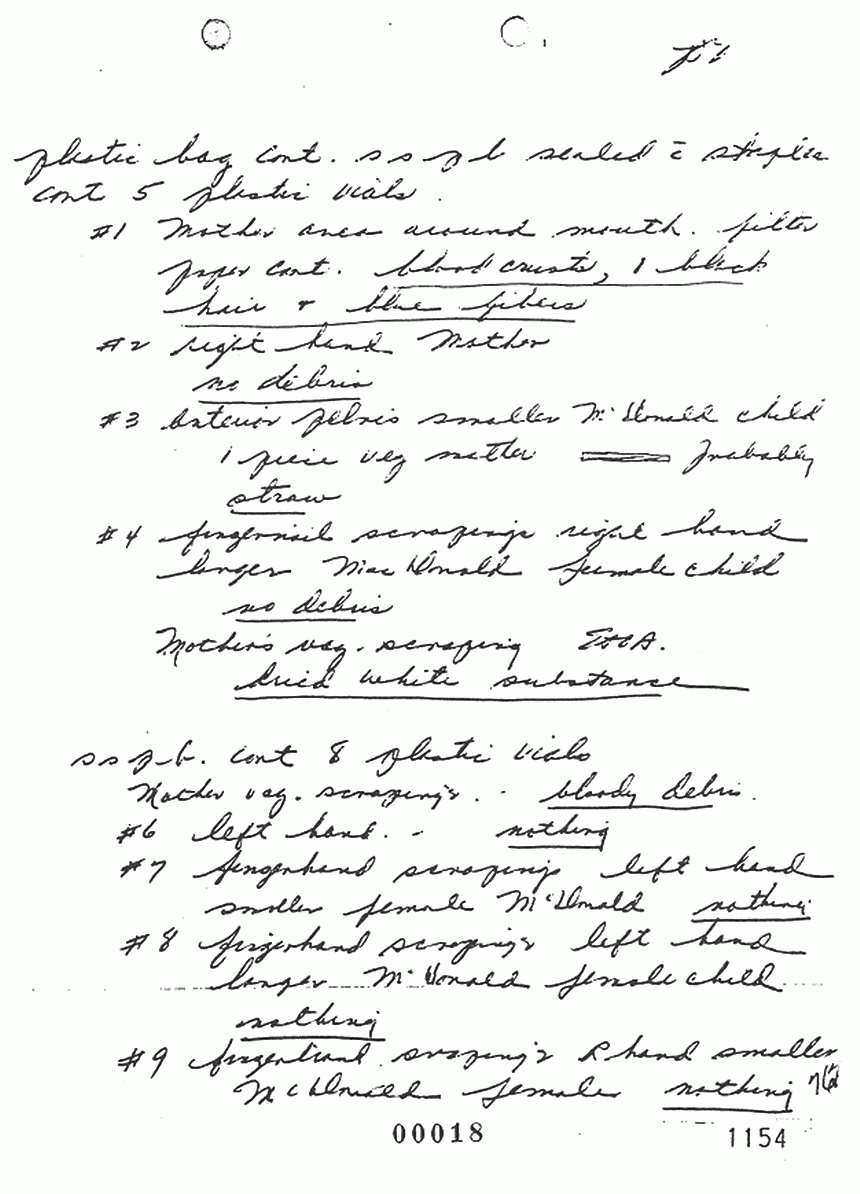 plastic bag cont. s s p b sealed c̄ staples
cont 5 plastic vials.
#1 Mother area around mouth. filter
paper cont. blood crusts, 1 black
hair + blue fibers
#2 right hand Mother
no debris
#3 anterior pelvis smaller McDonald child
1 piece veg matter probably
straw
#4 fingernail scrapings right hand
larger MacDonald female child
no debris
Mother's vag. scraping
dried white substance
s s p b. cont 8 plastic vials
Mother vag. scraping's. - bloody debris.
#6 left hand. - nothing
#7 fingerhand scrapings left hand
smaller female McDonald nothing
#8 fingerhand scraping's left hand
larger McDonald female child
nothing
#9 fingerhand scraping's R hand smaller
McDonald female nothing
00018 1154